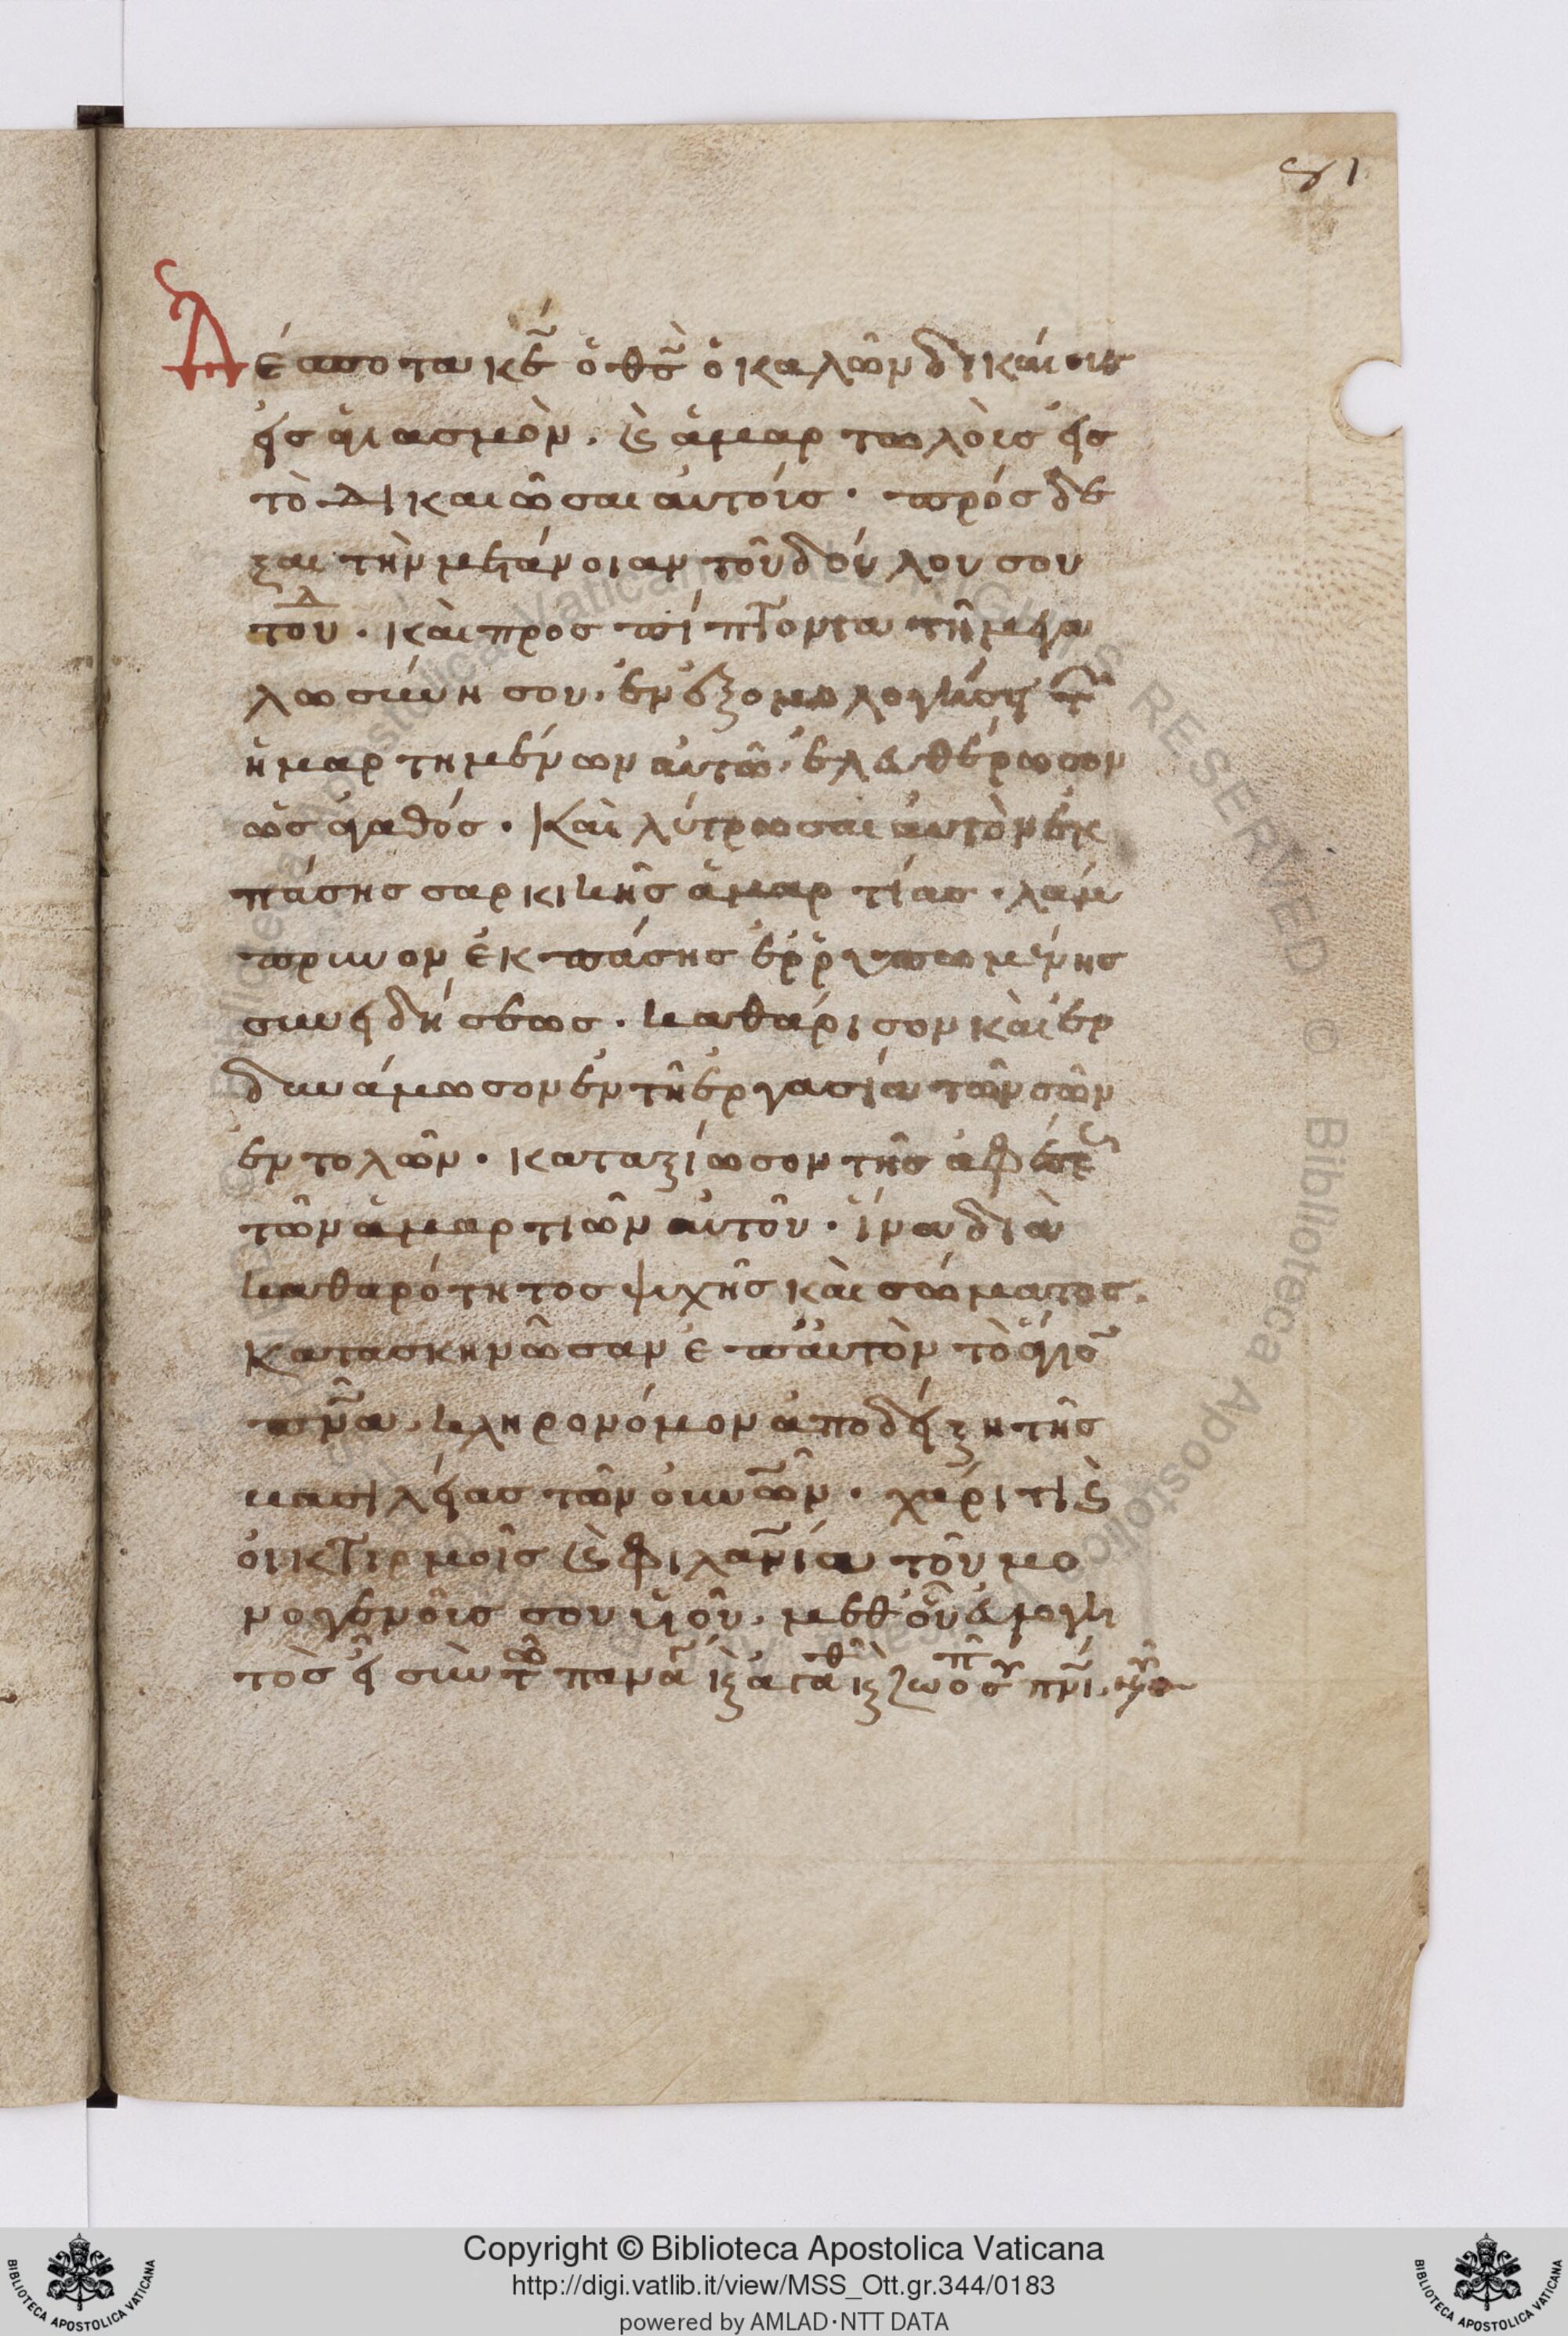 81
Δέσποτα κε̄ ὁ θσ̄ ὁ καλῶν δικαίους
εἰς ἁγιασμὸν. καὶ ἁμαρτωλοὺς εἰς
τὸ δικαιῶσαι αὐτοὺς. πρόσδε
ξαι τὴν μετάνοιαν τοῦ δούλου σου
τοῦ δ. καὶ προσπίπτοντα τῆ μεγα
λωσύνη σου. ἐν ἐξομολογήσει τῶν
ἡμαρτημένων αὐτῶ. ἐλευθέρωσον
ὡς ἀγαθός. Καὶ λύτρωσαι αὐτὸν ἐκ
πάσης σαρκικῆς ἁμαρτίας. λάμ
πρυνον ἐκ πάσης ἐρρυπωμένης
συνειδήσεως. καθάρισον καὶ ἐν
δυνάμωσον ἐν τῆ ἐργασία τῶν σῶν
ἐντολῶν. καταξίωσον τῆς ἀφέσεως
τῶν ἁμαρτιῶν αὐτοῦ. ἵνα διὰ
καθαρότητος ψυχῆς καὶ σώματος.
Κατασκηνῶσαν ἐπ' αὐτὸν τὸ ἅγιον
πνᾶ. κληρονόμον ἀποδείξη τῆς
βασιλείας τῶν οὐνῶν. χάριτι καὶ
οἰκτιρμοῖς καὶ φιλανίᾳ τοῦ μο
νογενοῦς σου υἱοῦ. μεθ' οὗ εὐλογη
τὸς εἶ σὺν τῶ παναγ καὶ ἀγαθ καὶ ζωοπ σου πνι. νῦν
Copyright © Biblioteca Apostolica Vaticana
http://digi.vatlib.it/view/MSS_Ott.gr.344/0183
powered by AMLAD·NTT DATA
BIBLIOTECA APOSTOLICA VATICANA
BIBLIOTECA APOSTOLICA VATICANA